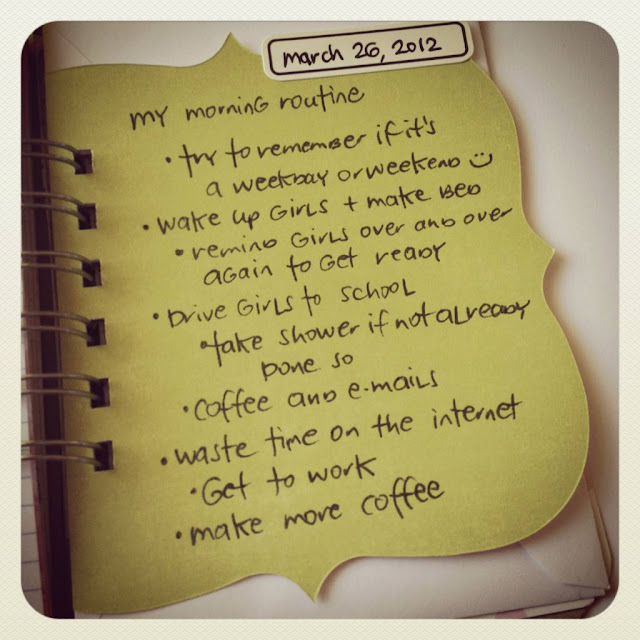 march 26, 2012
my morning routine
• try to remember if it's
a weekday or weekend ☺
• wake up Girls + make bed
• remind Girls over and over
again to Get ready
• Drive Girls to school
• take shower if not already
done so
• coffee and e-mails
• waste time on the internet
• Get to work
• make more coffee